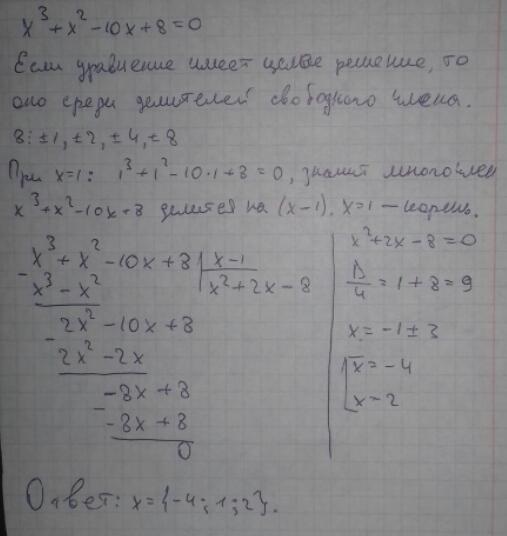 x³+x²-10x+8=0
Если уравнение имеет целое решение, то
оно среди делителей свободного члена.
8: ±1, ±2, ±4, ±8
При x=1: 1³+1²-10·1+8=0, значит многочлен
x³+x²-10x+8 делится на (x-1). x=1 - корень.
x³+x²-10x+8 | x-1
- x³-x² | x²+2x-8
2x²-10x+8
- 2x²-2x
-8x+8
- -8x+8
0
x²+2x-8=0
D/4=1+8=9
x=-1±3
[x=-4
x=2
Ответ: x={-4;1;2}.